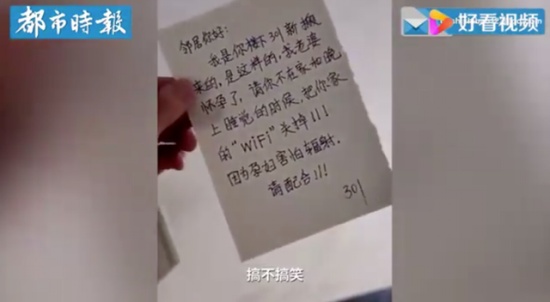 都市時報
好看视频
邻居你好:
我是你楼下301新搬
来的,是这样的,我老婆
怀孕了,请你不在家和晚
上睡觉的时候,把你家
的"WiFi"关掉!!!
因为孕妇害怕辐射.
请配合!!!
301
搞不搞笑